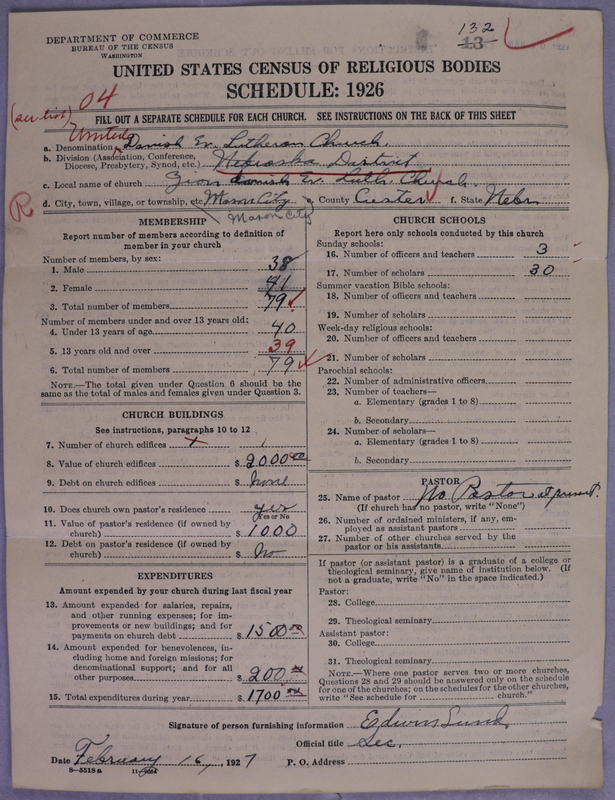 132
13
DEPARTMENT OF COMMERCE
BUREAU OF THE CENSUS
WASHINGTON
UNITED STATES CENSUS OF RELIGIOUS BODIES
SCHEDULE: 1926
04
FILL OUT A SEPARATE SCHEDULE FOR EACH CHURCH. SEE INSTRUCTIONS ON THE BACK OF THIS SHEET
United
a. Denomination Danish Ev. Lutheran Church.
b. Division (Association, Conference, Diocese, Presbytery, Synod, etc.) Nebraska District
c. Local name of church Zion Danish Ev. Luth. Church.
R
d. City, town, village, or township, etc Mason City e. County Custer f. State Nebr
Mason City
MEMBERSHIP
Report number of members according to definition of
member in your church
Number of members, by sex:
1. Male 38
2. Female 41
3. Total number of members 79
Number of members under and over 13 years old:
4. Under 13 years of age 40
5. 13 years old and over 39
6. Total number of members 79
NOTE.—The total given under Question 6 should be the
same as the total of males and females given under Question 3.
CHURCH BUILDINGS
See instructions, paragraphs 10 to 12
7. Number of church edifices 1
8. Value of church edifices $ 2000 00
9. Debt on church edifices $ None
10. Does church own pastor's residence yes
Yes or No
11. Value of pastor's residence (if owned by
church) $ 1000
12. Debt on pastor's residence (if owned by
church) $ No
EXPENDITURES
Amount expended by your church during last fiscal year
13. Amount expended for salaries, repairs,
and other running expenses; for im-
provements or new buildings; and for
payments on church debt $ 1500 00
14. Amount expended for benevolences, in-
cluding home and foreign missions; for
denominational support; and for all
other purposes $ 200 00
15. Total expenditures during year $ 1700 00
CHURCH SCHOOLS
Report here only schools conducted by this church
Sunday schools:
16. Number of officers and teachers 3
17. Number of scholars 30
Summer vacation Bible schools:
18. Number of officers and teachers
19. Number of scholars
Week-day religious schools:
20. Number of officers and teachers
21. Number of scholars
Parochial schools:
22. Number of administrative officers
23. Number of teachers—
a. Elementary (grades 1 to 8)
b. Secondary
24. Number of scholars—
a. Elementary (grades 1 to 8)
b. Secondary
PASTOR
25. Name of pastor No Pastor at present.
(If church has no pastor, write "None")
26. Number of ordained ministers, if any, em-
ployed as assistant pastors
27. Number of other churches served by the
pastor or his assistants
If pastor (or assistant pastor) is a graduate of a college or
theological seminary, give name of institution below. (If
not a graduate, write "No" in the space indicated.)
Pastor:
28. College
29. Theological seminary
Assistant pastor:
30. College
31. Theological seminary
NOTE.—Where one pastor serves two or more churches,
Questions 28 and 29 should be answered only on the schedule
for one of the churches; on the schedules for the other churches,
write "See schedule for church."
Signature of person furnishing information Edwin Lund
Official title Sec.
Date February 16, 1927 P. O. Address
8—5518a